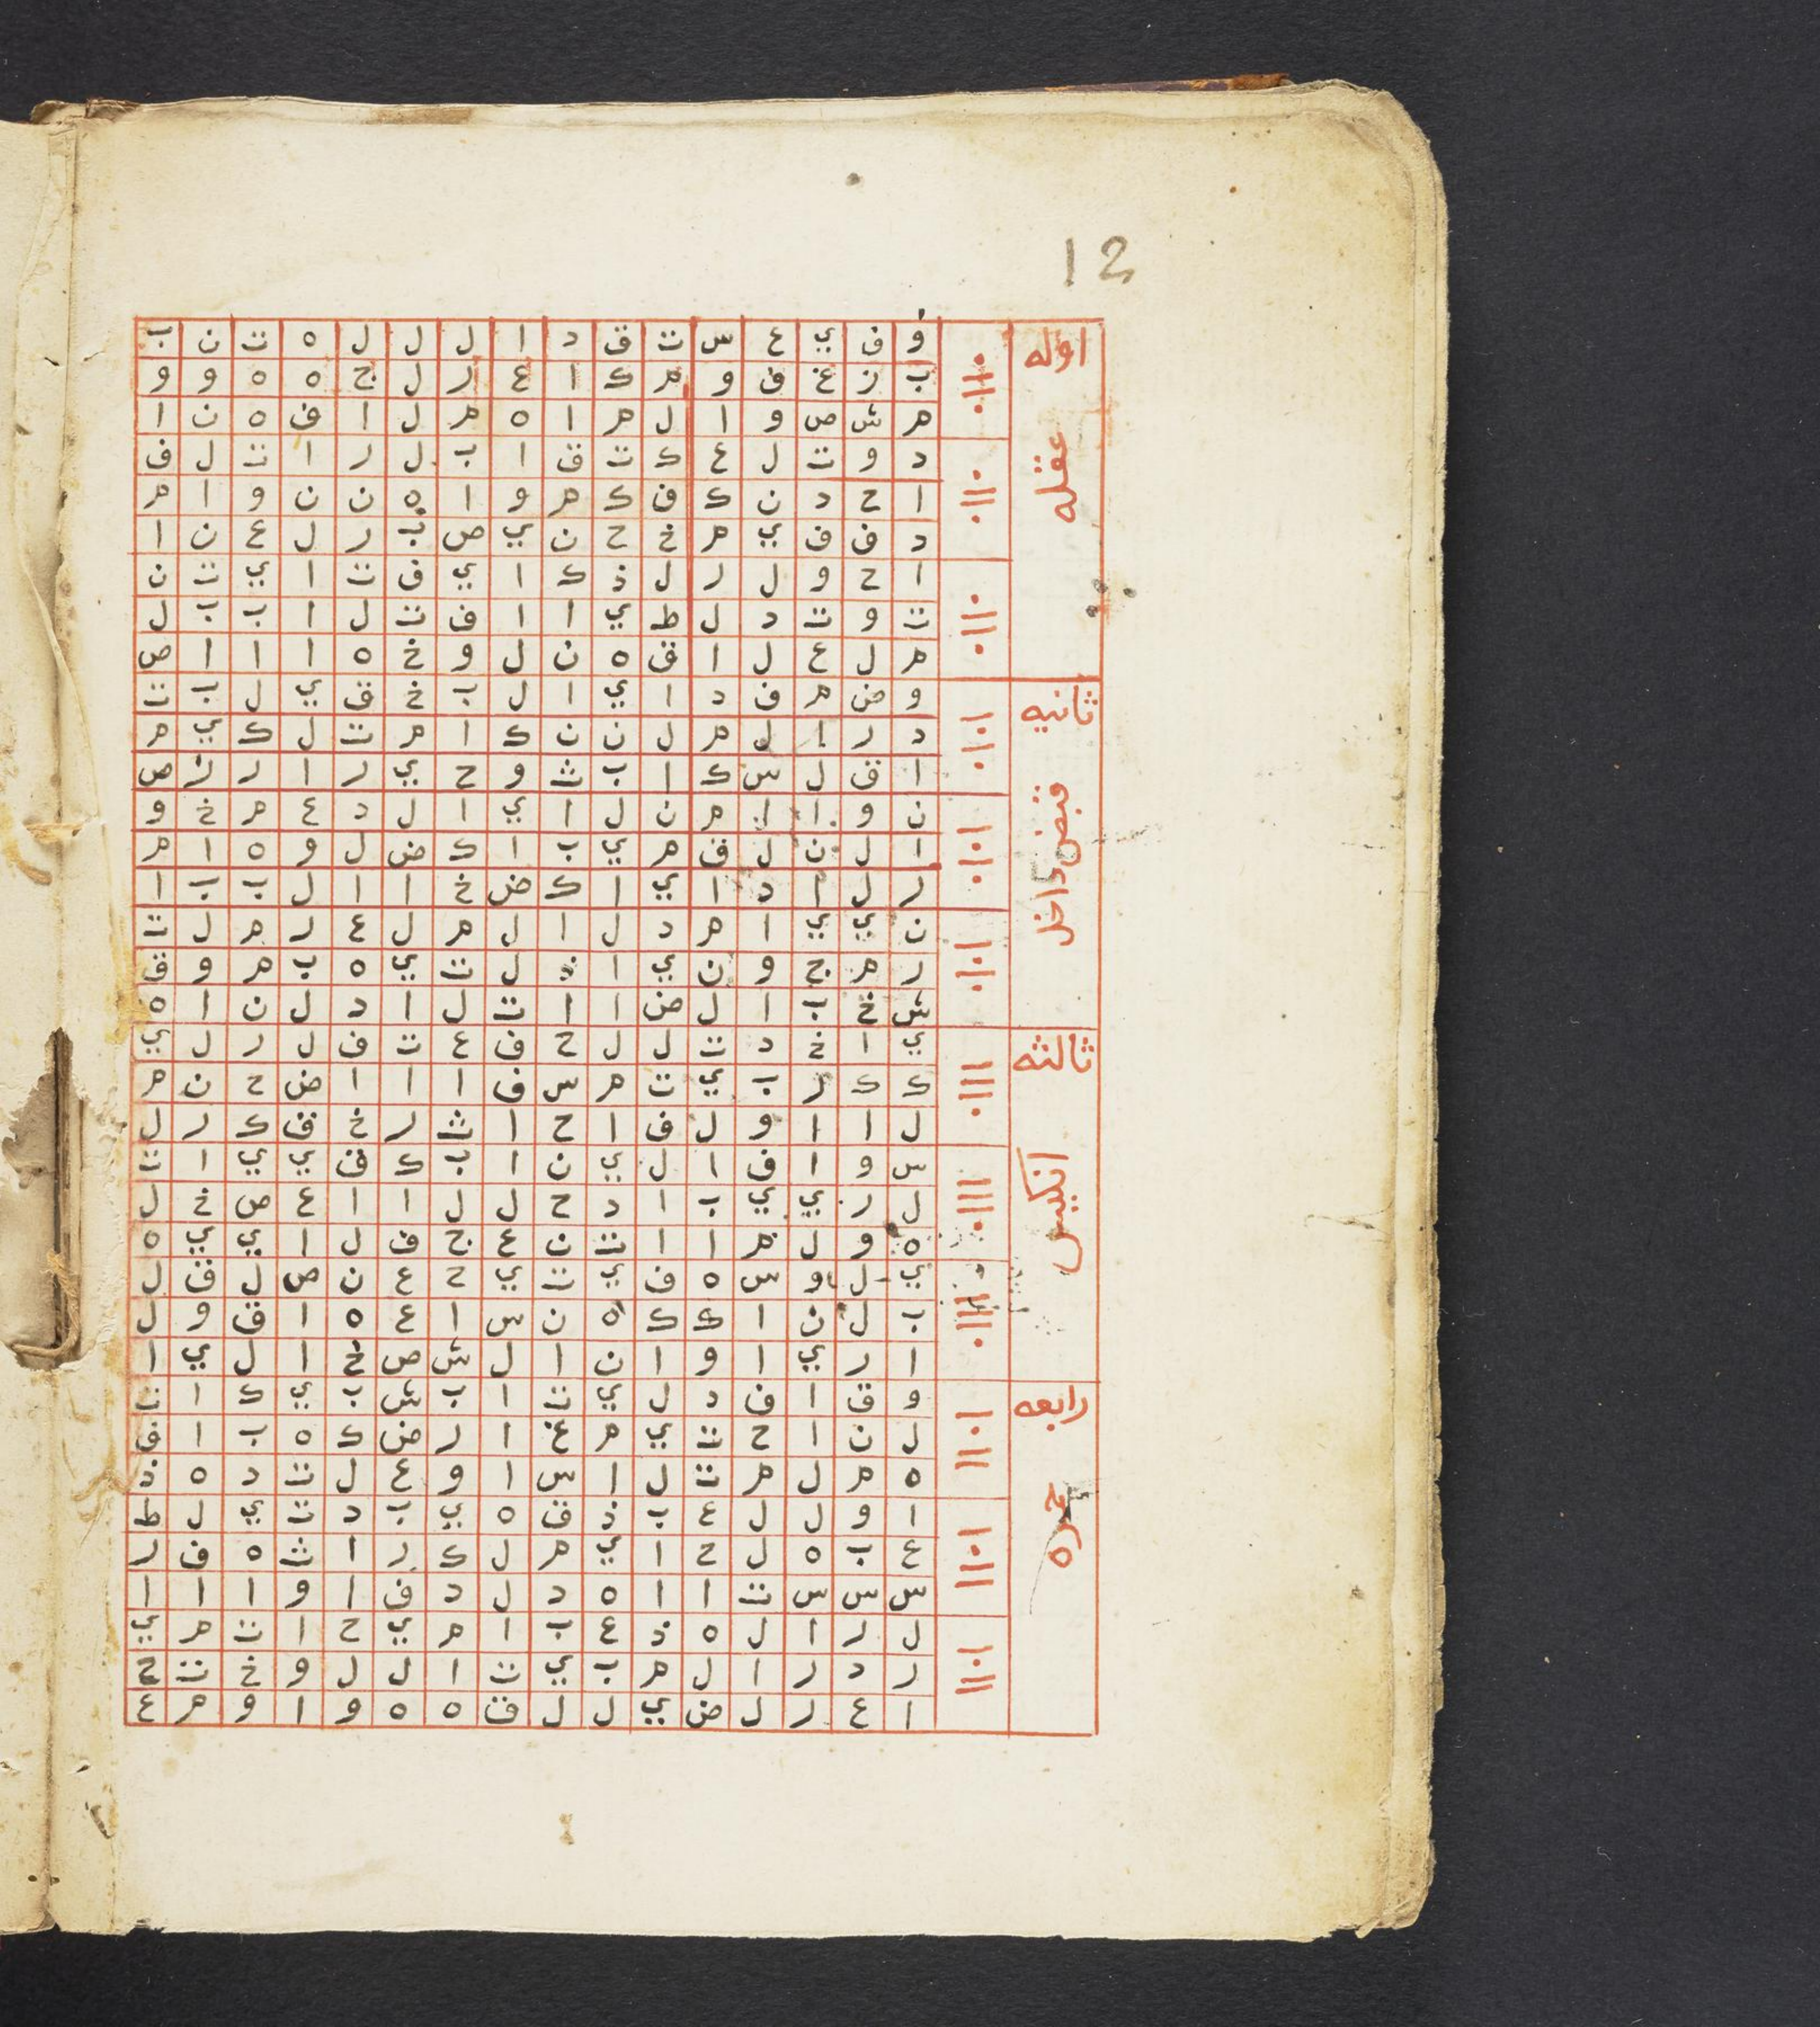 12
اوله
عقله
و ف ي ع س ت ق د ا ل ل ل ه ت ن ب
ب ز غ ف و م ك ا ع ر ل ج ه ه و و
م ش ص و ا ل م ا ه م ل ا ف ه ن ا
د و ت ل ع ك ت ق ا ب ل ر ا ت ل ف
ا ح د ن ك ف ك م و ا ه ن ن و ا م
د ف ف ي م خ ح ن ي ص ب ر ل ع ن ا
ا ح و ل ر ل ذ ك ا ي ف ت ا ي ت ن
ت و ت د ل ط ي ا ا ف ت ل ا ب ب ل
م ل ع ل ا ق ه ن ل و خ ه ا ا ا ص
ثانيه
قبض داخل
و ض م ف د ا ي ا ل ب خ ق ي ل ب ت
د ر ا ل م ل ن ن ك ا م ت ل ك ي م
ا ق ل س ك ا ب ث و ح ي ر ا ر ر ص
ن و ا ا م ن ل ا ي ا ل د ع م خ و
ا ل ن ل ف م ي ب ا ك ض ل و ه ا م
ر ل ا د ا ي ا ك ض خ ا ا ل ب ب ا
ن ي ي ا م د ل ا ل م ل ع ر م ل ت
ر م ج و ن ي ا ذ ل ت ي ه ب م و ق
ش خ ب ا ل ض ا ا ت ل ا د ل ن ا ه
ثالثه
انكيس
ي ا خ د ت ل ل ح ف ع ت ف ل ر ل ي
ك ك ر ب ي ت م س ف ا ا ا ض ح ن م
ل ا ا و ل ف ا ح ا ث ر خ ق ك ر ل
س و ا ف ا ل ي ن ا ب ك ف ي ي ا ت
ل ر ي ي ب ا د ح ل ل ا ا ع ص خ ل
ه و ل م ا ا ت ن ع ج ف ل ا ي ي ه
ي ل و س ه ف ي ت ي ح ع ن ص ل ق ل
ب ل ن ا ك ك ه ن س ا ع ه ا ق و ل
ا ر ي ا و ا ن ا ل ش ص خ ا ل ي ا
رابعه
حمره
و ق ا ف د ل ي ت ا ب ش ب ي ك ا ت
ل ن ا ح ت ي م غ ا ر ض ك ه ب ا ف
ه م ل م ت ل ا س ا و ع ل ت د ه ذ
ا و ل ل ع ب ذ ق ه ي ب د ت ي ل ط
ع ب ه ل ح ا ي م ل ك ر ا ث ه ف ر
س س س ت ا ا ه د ل د ف ا و ا ا ا
ل ر ا ل ه ذ ع ب ا م ي ح ا ت م ي
ر د ر ا ل م ب ي ت ا ل ل و خ ت ح
ا ع ر ل ض ي ل ل ق ه ه و ا و م ع